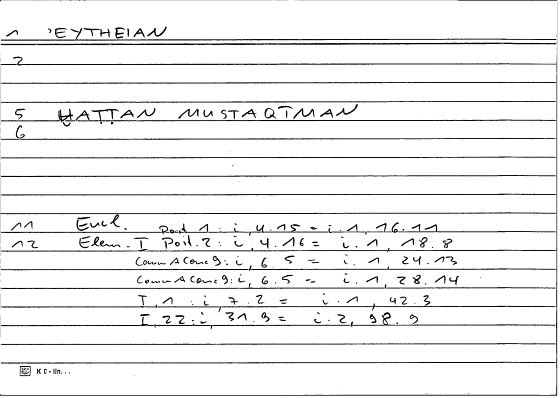 1 'EYTHEIAN
2
5 ḪAṬṬAN MUSTAQĪMAN
6
11 Eucl. Post 1 : i, 4.15 = i.1, 16.11
12 Elem. I Post. 2 : i, 4.16 = i.1, 18.8
Comm A Conc 9 : i, 6.5 = i.1, 24.13
Comm A Conc 9 : i, 6.5 = i.1, 28.14
I.1 : i, 7.2 = i.1, 42.3
I.22 : i, 31.9 = i.2, 98.9